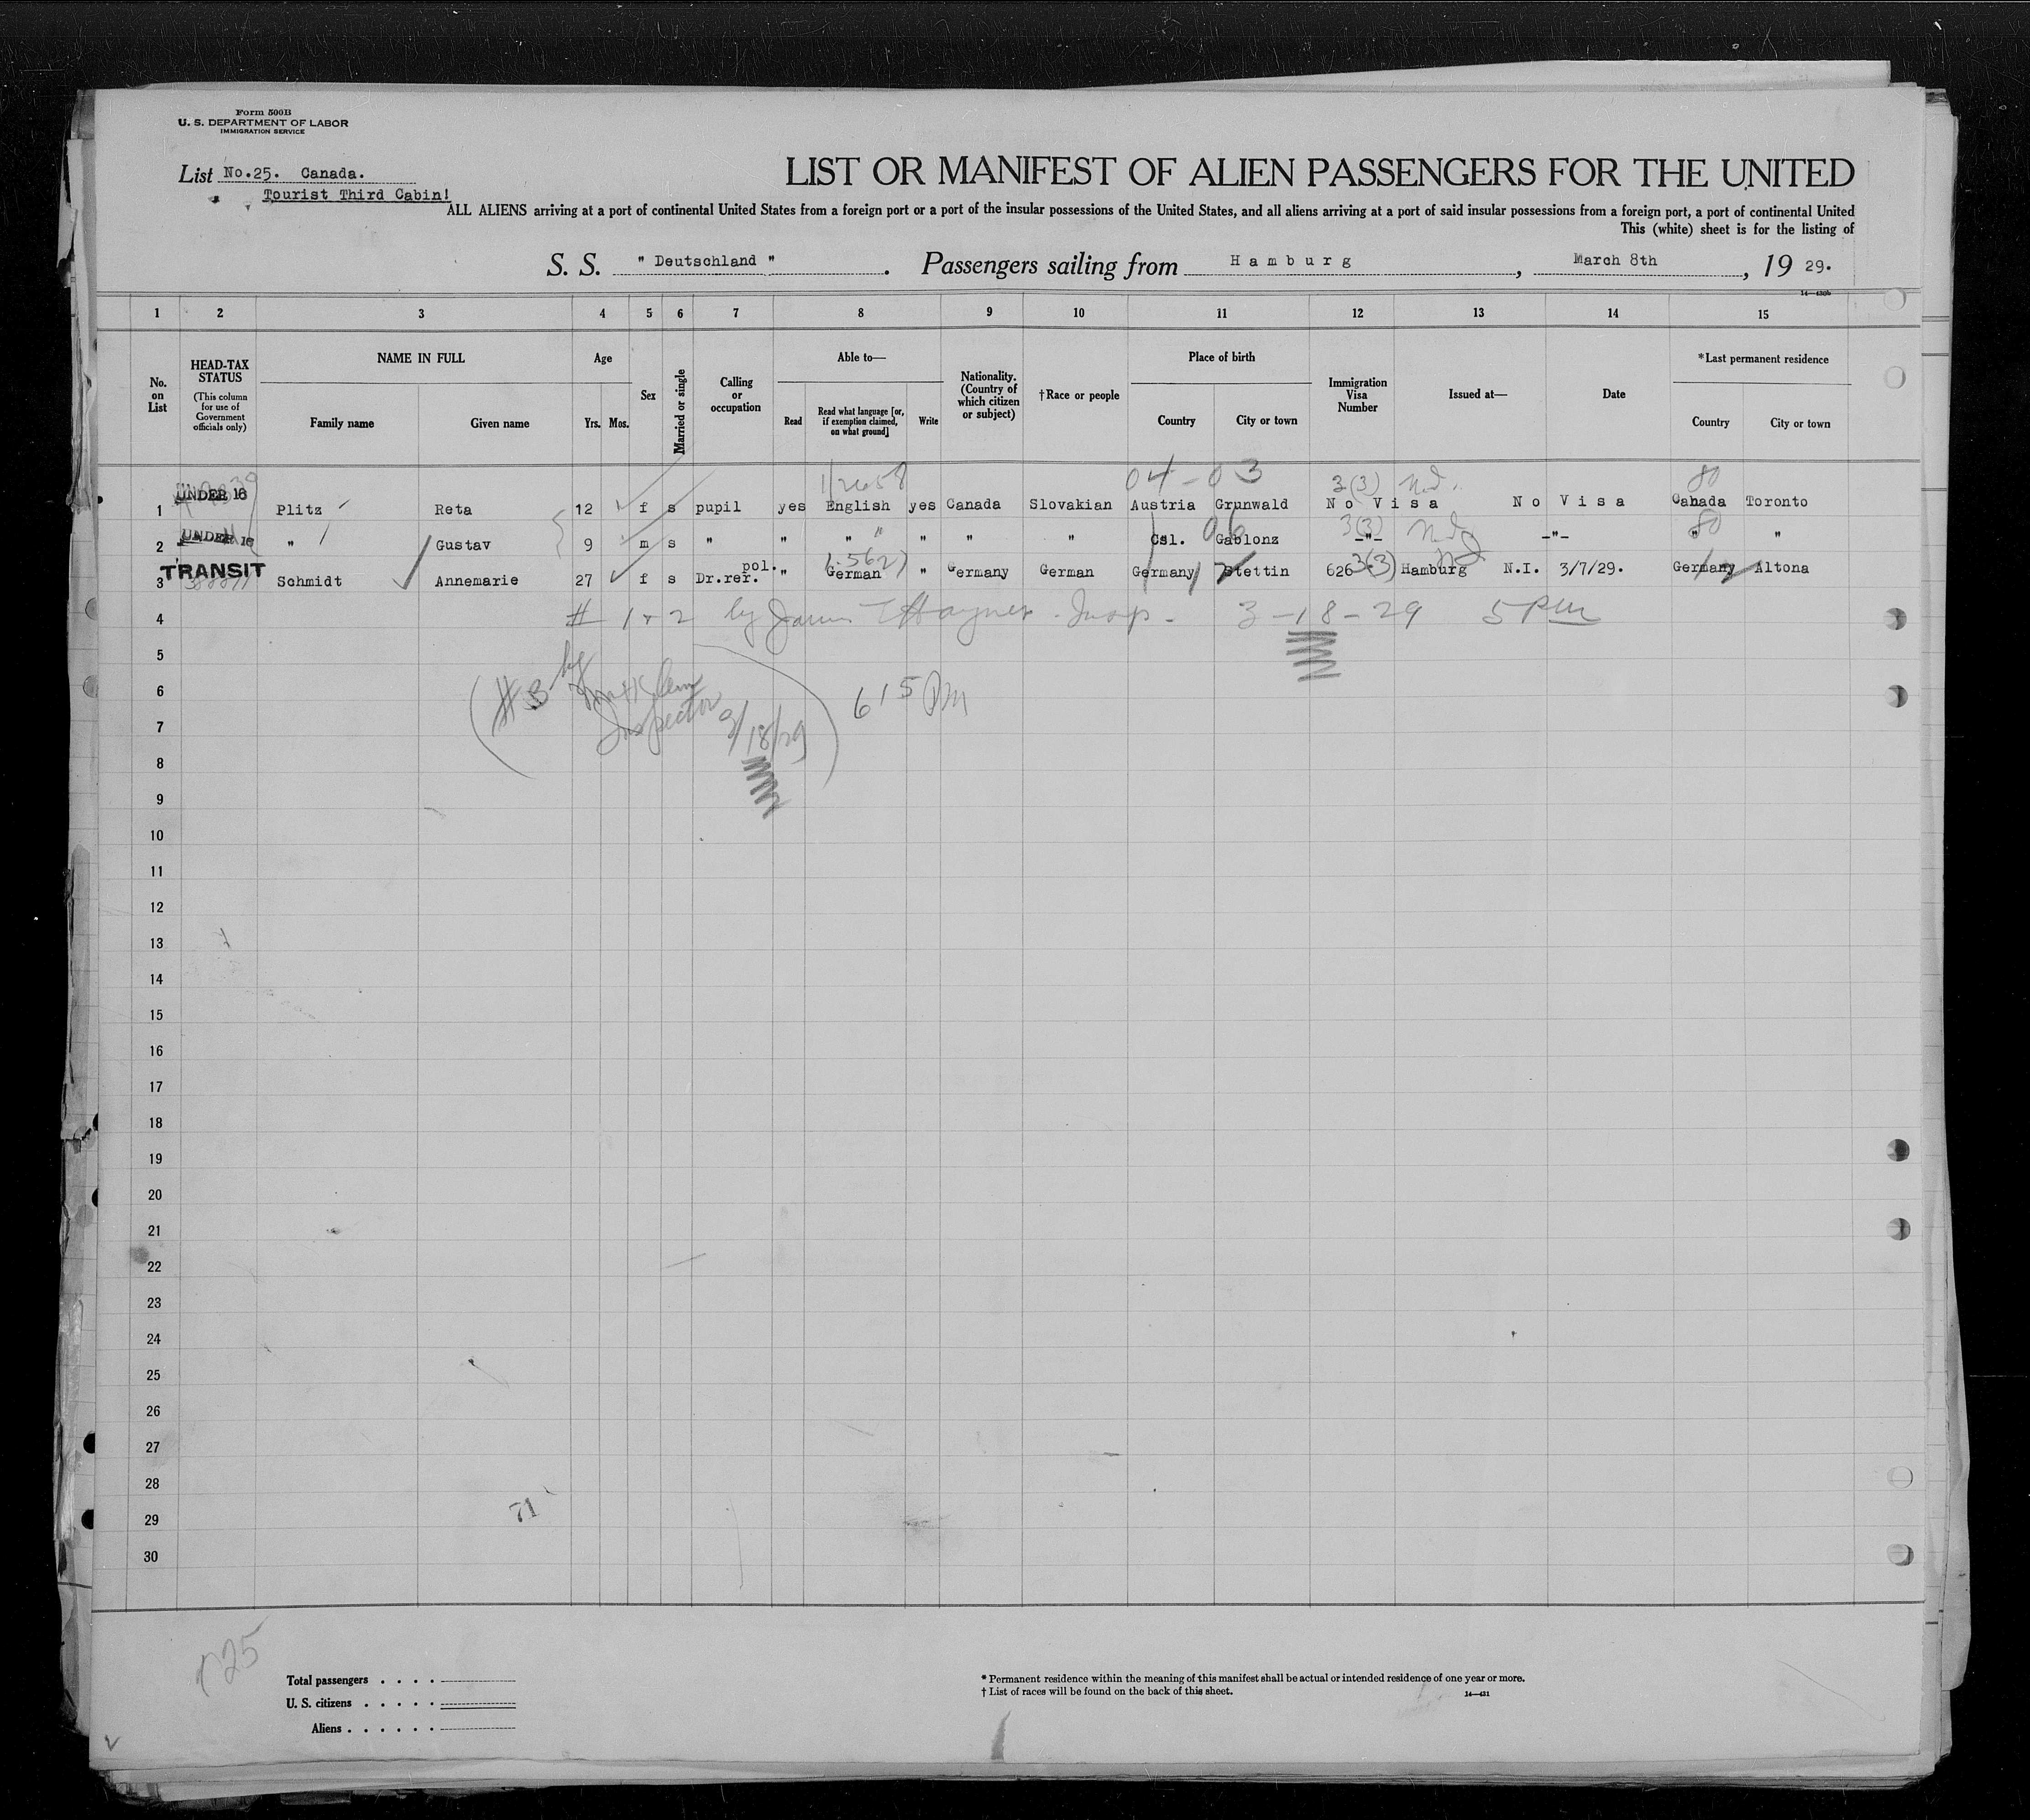 Form 500B
U. S. DEPARTMENT OF LABOR
IMMIGRATION SERVICE
List No.25. Canada.
Tourist Third Cabin!
LIST OR MANIFEST OF ALIEN PASSENGERS FOR THE UNITED
ALL ALIENS arriving at a port of continental United States from a foreign port or a port of the insular possessions of the United States, and all aliens arriving at a port of said insular possessions from a foreign port, a port of continental United
This (white) sheet is for the listing of
S. S. " Deutschland " . Passengers sailing from Hamburg , March 8th , 19 29.
1 2 3 4 5 6 7 8 9 10 11 12 13 14 15
No. on List
HEAD-TAX STATUS (This column for use of Government officials only)
NAME IN FULL Family name Given name
Age Yrs. Mos.
Sex
Married or single
Calling or occupation
Able to— Read Read what language [or, if exemption claimed, on what ground] Write
Nationality. (Country of which citizen or subject)
†Race or people
Place of birth Country City or town
Immigration Visa Number
Issued at—
Date
*Last permanent residence Country City or town
112658 04-03 3(3) 80
1 UNDER 16 Plitz Reta 12 f s pupil yes English yes Canada Slovakian Austria Grunwald No Visa No Visa Canada Toronto
06 3(3) 80
2 UNDER 16 " Gustav 9 m s " " " " " " Csl. Gablonz -"- -"- " "
3 TRANSIT Schmidt Annemarie 27 f s Dr.rer. pol. " German " Germany German Germany Stettin 626 3(3) Hamburg N.I. 3/7/29. Germany Altona
4 # 1 + 2 by Insp. 3-18-29 5 PM
5
6 #3 by 615 PM
7 Inspector 3/18/29
8
9
10
11
12
13
14
15
16
17
18
19
20
21
22
23
24
25
26
27
28
29 71
30
Total passengers . . . .
U. S. citizens . . . . .
Aliens . . . . . .
* Permanent residence within the meaning of this manifest shall be actual or intended residence of one year or more.
† List of races will be found on the back of this sheet.
14—431